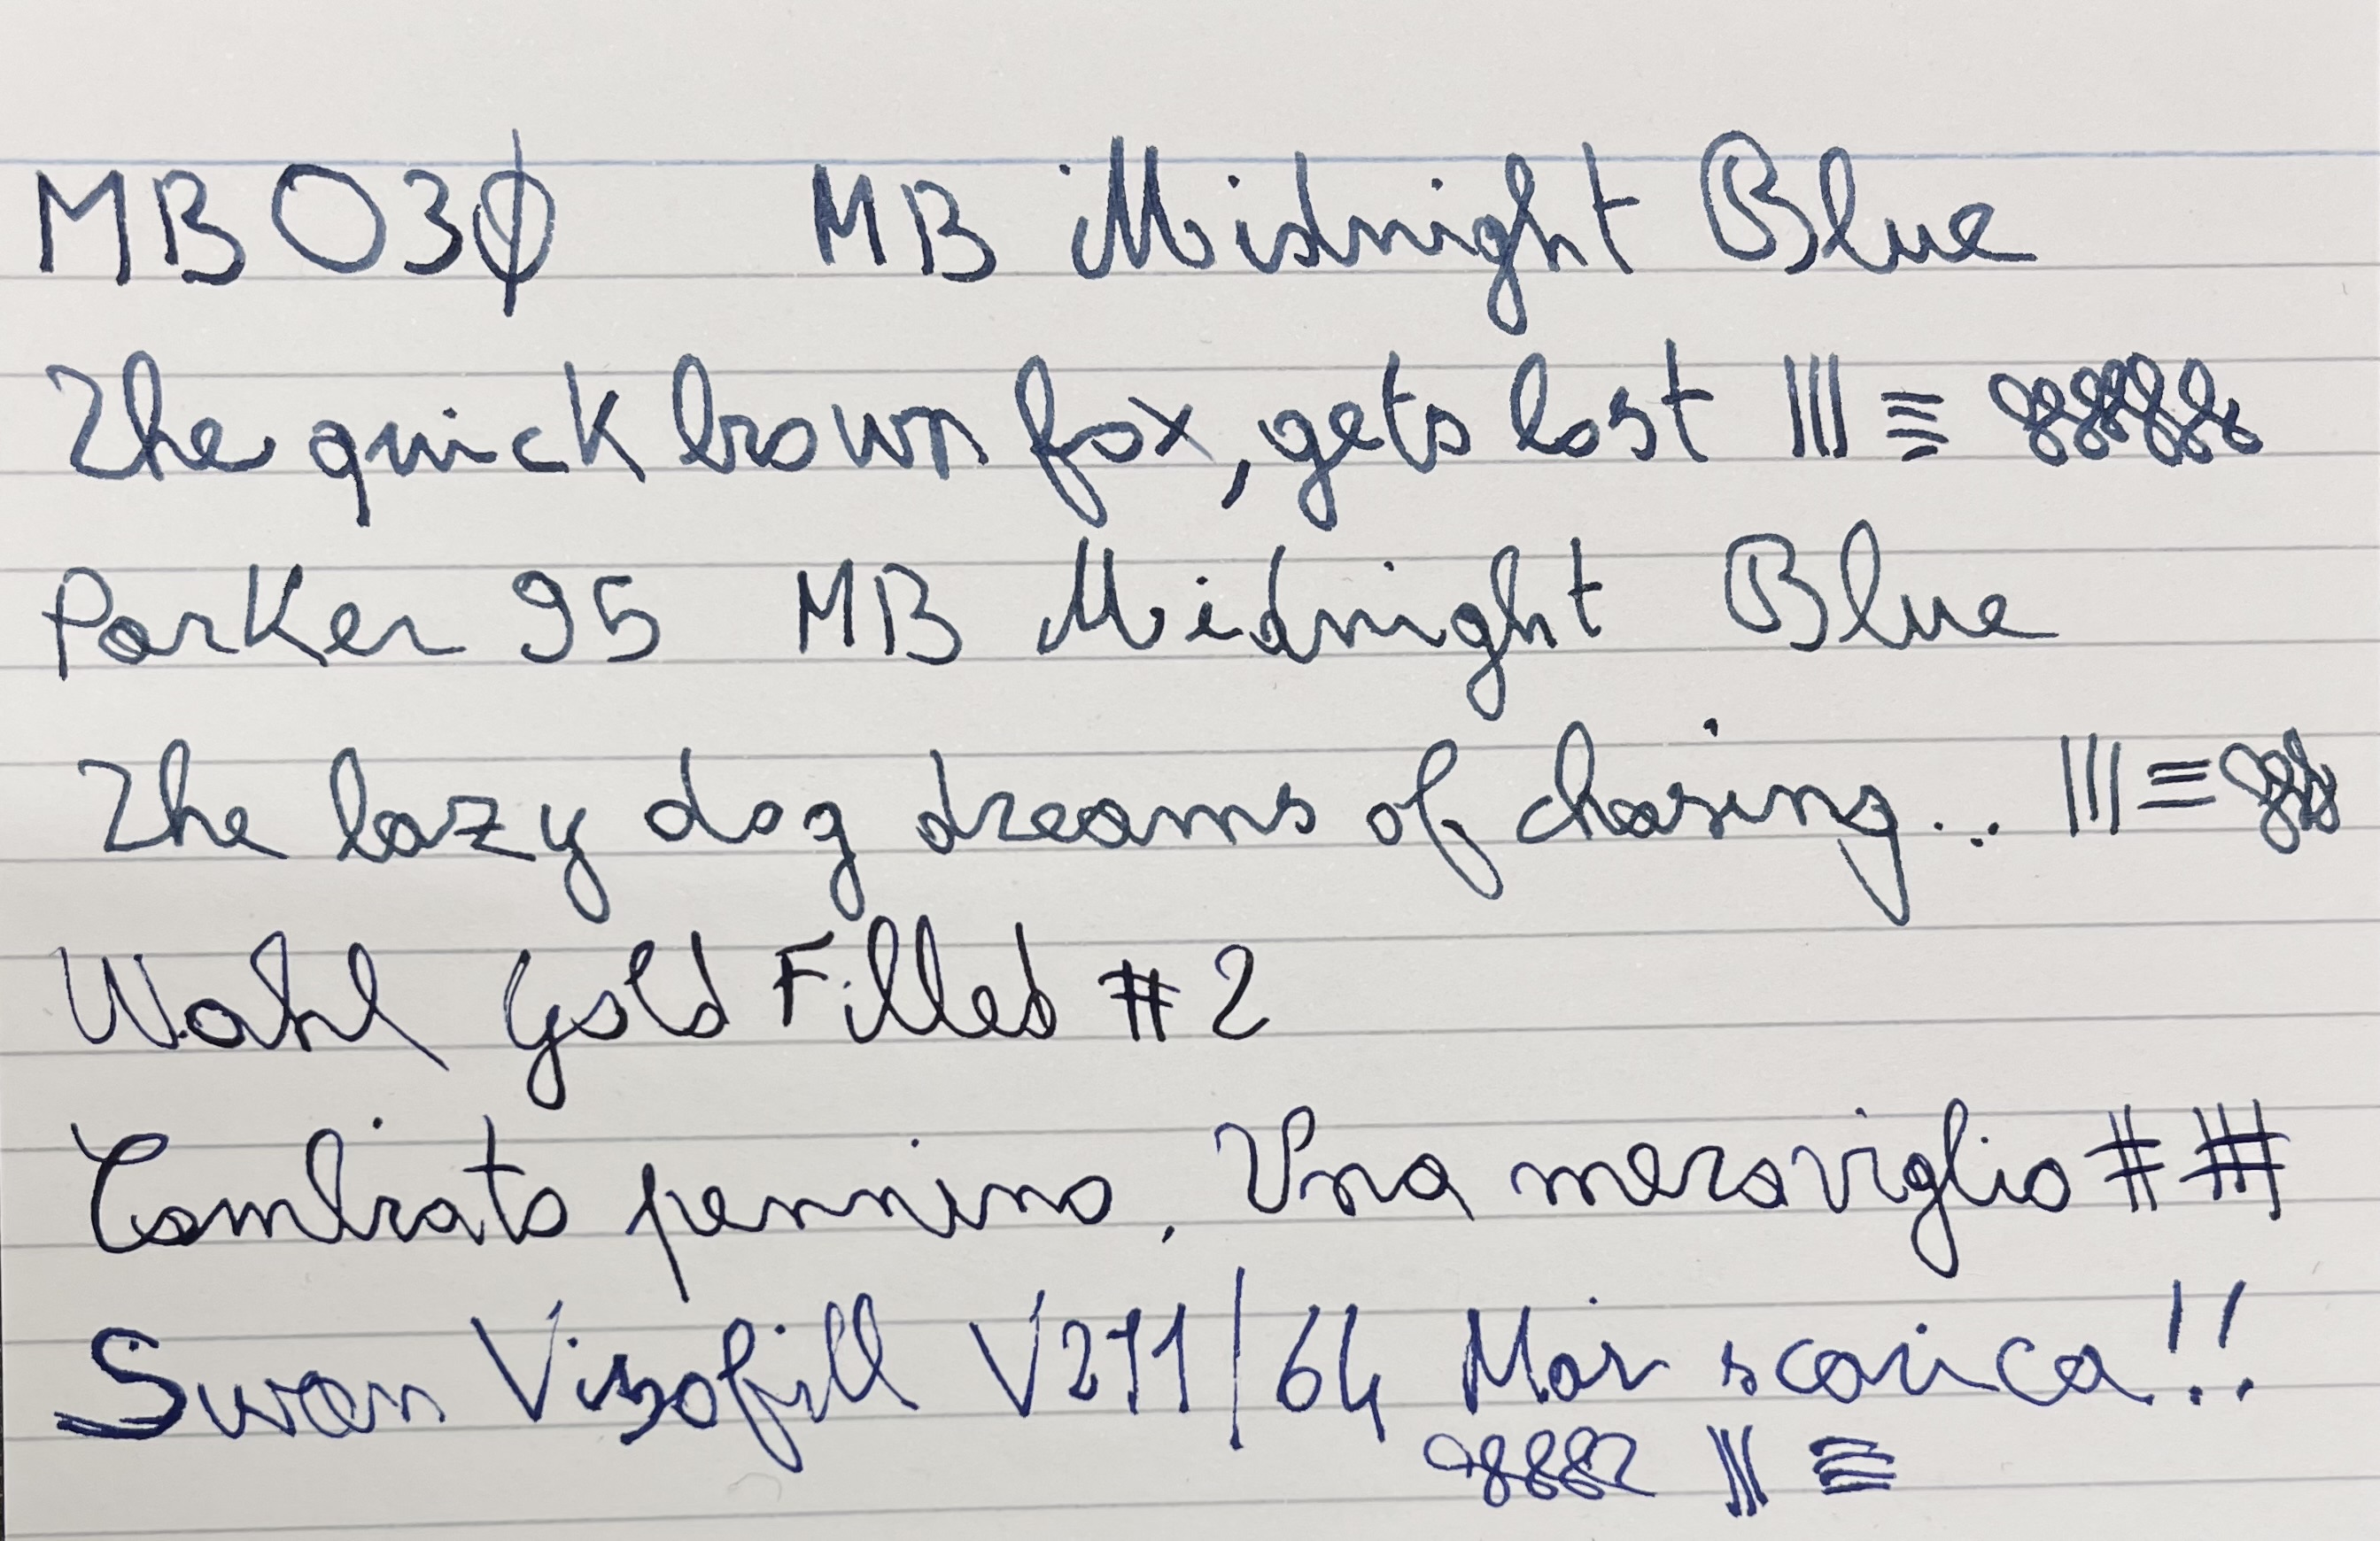 MB 030 MB Midnight Blue
The quick brown fox, gets lost ||| ≡ 88888
Parker 95 MB Midnight Blue
The lazy dog dreams of chasing... ||| ≡ 888
Wahl Gold Filled #2
Cambiato pennino. Una meraviglia # #
Swan Visofill V271/64 Mai scarica!!
8888 ||| ≡